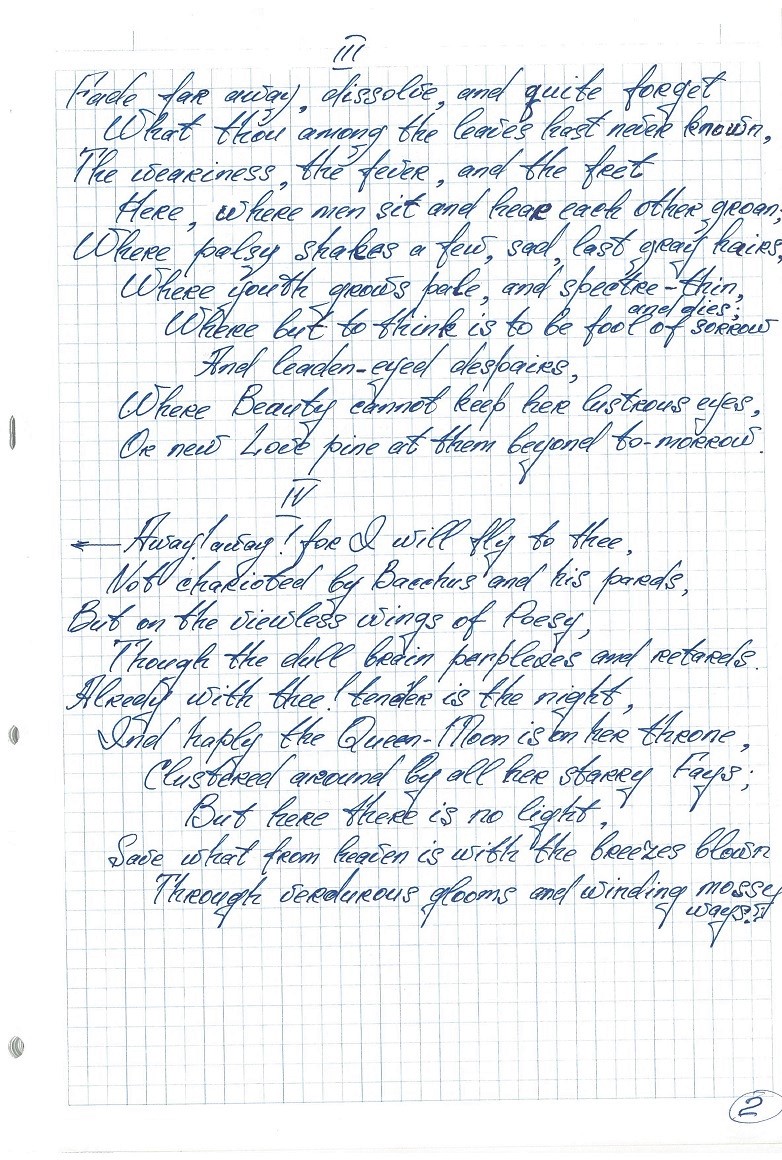 III
Fade far away, dissolve, and quite forget
What thou among the leaves hast never known,
The weariness, the fever, and the fret
Here, where men sit and hear each other groan;
Where palsy shakes a few, sad, last gray hairs,
Where youth grows pale, and spectre-thin,
and dies;
Where but to think is to be fool of sorrow
And leaden-eyed despairs,
Where Beauty cannot keep her lustrous eyes,
Or new Love pine at them beyond to-morrow.
IV
← Away! away! for I will fly to thee,
Not charioted by Bacchus and his pards,
But on the viewless wings of Poesy,
Though the dull brain perplexes and retards.
Alredy with thee! tender is the night,
And haply the Queen-Moon is on her throne,
Clustered around by all her starry Fays;
But here there is no light,
Save what from heaven is with the breezes blown
Through verdurous glooms and winding mossy
ways.
2